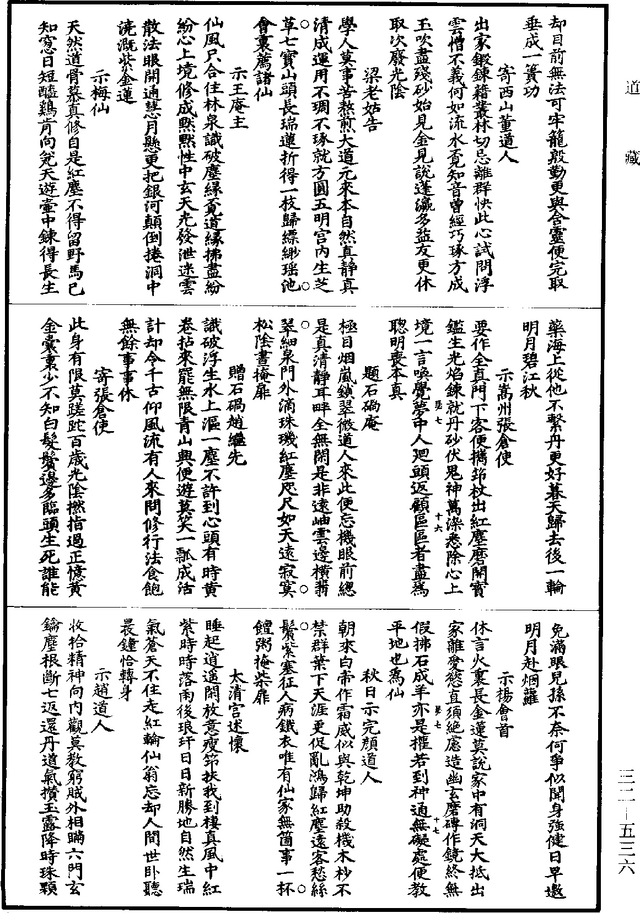 道藏
却目前無法可牢籠殷勤更與含靈便完取
垂成一簣功
寄西山董道人
出家鍛鍊藉叢林切忌離群快此心試問浮
雲憎不義何如流水覓知音曾經巧琢方成
玉吹盡殘砂始見金見說蓬瀛多益友更休
取次廢光陰
梁老姑告
學人莫事苦熬煎大道元來本自然真靜真
清成運用不琱不琢就方圓五明宮內生芝
草七寶山頭長瑞蓮折得一枝歸縹緲瑤池
會裏薦諸仙
示王庵主
仙風只合住林泉識破塵緣貢道緣拂盡紛
紛心上境修成默默性中玄天光發泄迷雲
散法眼開通慧月懸更把銀河顛倒捲洞中
澆溉紫金蓮
示梅仙
天然道骨慕真修自是紅塵不得留野馬已
知窓日短醯鷄肯向瓮天遊壷中鍊得長生
藥海上從他不繫丹更好暮天歸去後一輪
明月碧江秋
示嵩州張倉使
要作全真門下客便攜筇杖出紅塵磨開寶
鑑生光焰鍊就丹砂伏鬼神萬染悉除心上
境一言喚覺夢中人廻頭返顧區區者盡爲
聰明喪本真
題石碣庵
極目烟嵐鎖翠微道人來此便忘機眼前緫
是真清靜耳畔全無閑是非遠岫雲邊橫翡
翠細泉門外滴珠璣紅塵咫尺如天遠寂寞
松陰晝掩扉
贈石碣趙繼先
識破浮生水上漚一塵不許到心頭有時黄
卷拈來罷無限青山興便遊莫笑一瓢成活
計却令千古仰風流有人來問修行法食飽
無餘事事休
寄張倉使
此身有限莫蹉跎百歲光陰撚指過正憶黄
金囊裏少不知白髮鬢邊多臨頭生死誰能
免滿眼兒孫不奈何爭似閑身強健日早邀
明月赴烟蘿
示楊會首
休言火裏長金蓮莫說家中有洞天大抵出
家離愛慾直須絶慮造幽玄磨磚作鏡終無
假拂石成羊亦是權若到神通無礙處便教
平地也爲仙
秋日示完顏道人
朝來白帝作霜威似與乾坤助殺機木杪不
禁群葉下天涯更促亂鴻歸紅塵遠客愁絲
鬢紫塞征人病鐵衣唯有仙家無箇事一杯
饘粥掩柴扉
太清宫述懷
睡起逍遥閑放意瘦筇扶我到棲真風中紅
紫時時落雨後琅玕日日新勝地自然生瑞
氣蒼天不住走紅輪仙翁忘却人間世卧聽
晨鐘恰轉身
示趙道人
收拾精神向内觀莫教窮賊外相瞞六門玄
鑰塵根斷七返還丹道氣攢玉露降時珠顆
三二—五三六